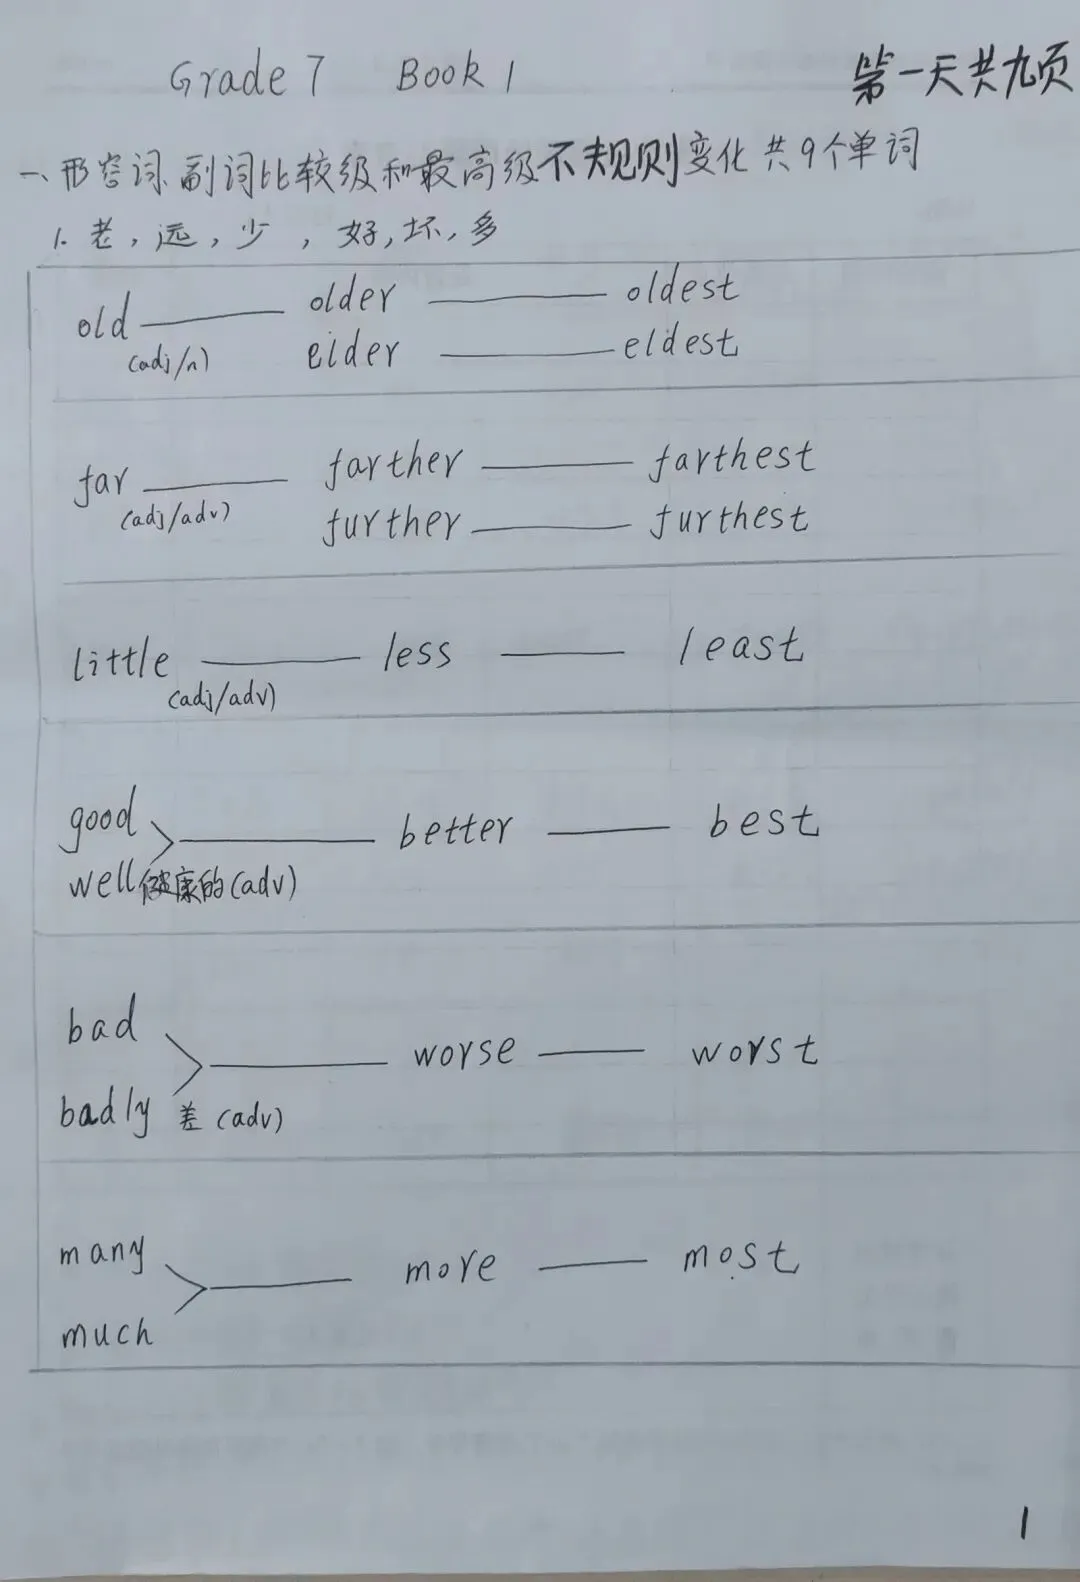 Grade 7 Book 1 第一天共九页
一、形容词、副词比较级和最高级不规则变化 共9个单词
1. 老，远，少，好，坏，多
older —— oldest
old ——
(adj/n) elder —— eldest
farther —— farthest
far ——
(adj/adv) further —— furthest
little —— less —— least
(adj/adv)
good
—— better —— best
well 健康的(adv)
bad
—— worse —— worst
badly 差(adv)
many
—— more —— most
much
1